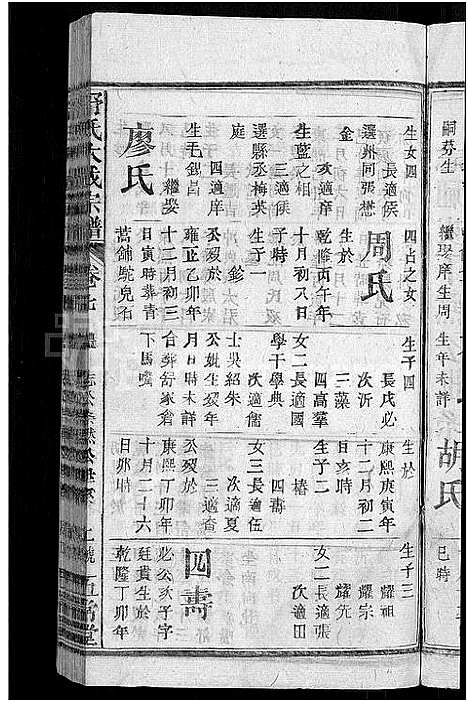 生女四
長適侯
選州同張懋
金
次適庠
生藍之相
三適
選縣丞梅英
庭
四適庠
生毛錫昌
廖氏
繼娶
四占之女
周氏
生於
乾隆丙午年
十月初八日
子時
生子一
鈔
公歿於
雍正乙卯年
十二月初三
日寅時葬青
蒿錦駝兒石
生子四
長戌必
次沂
三藻
四高羣
女二長適國
學千學典
次適儒
士吳紹朱
公妣生歿年
月日時未詳
合葬舒家倉
下馬嘴
生於
康熙庚寅年
十二月初二
日亥時
生子二
椿
四壽
女三長適伍
次適夏
三適查
公歿於
康熙丁卯年
十月二十六
日卯時
生子三
耀祖
耀宗
耀先
女二長適張
次適田
四壽
必公次子字
廷貴生於
乾隆丁卯年
舒氏大成宗譜
卷七
嗣芬生
繼娶庠生周
生年未詳
胡氏
巳時